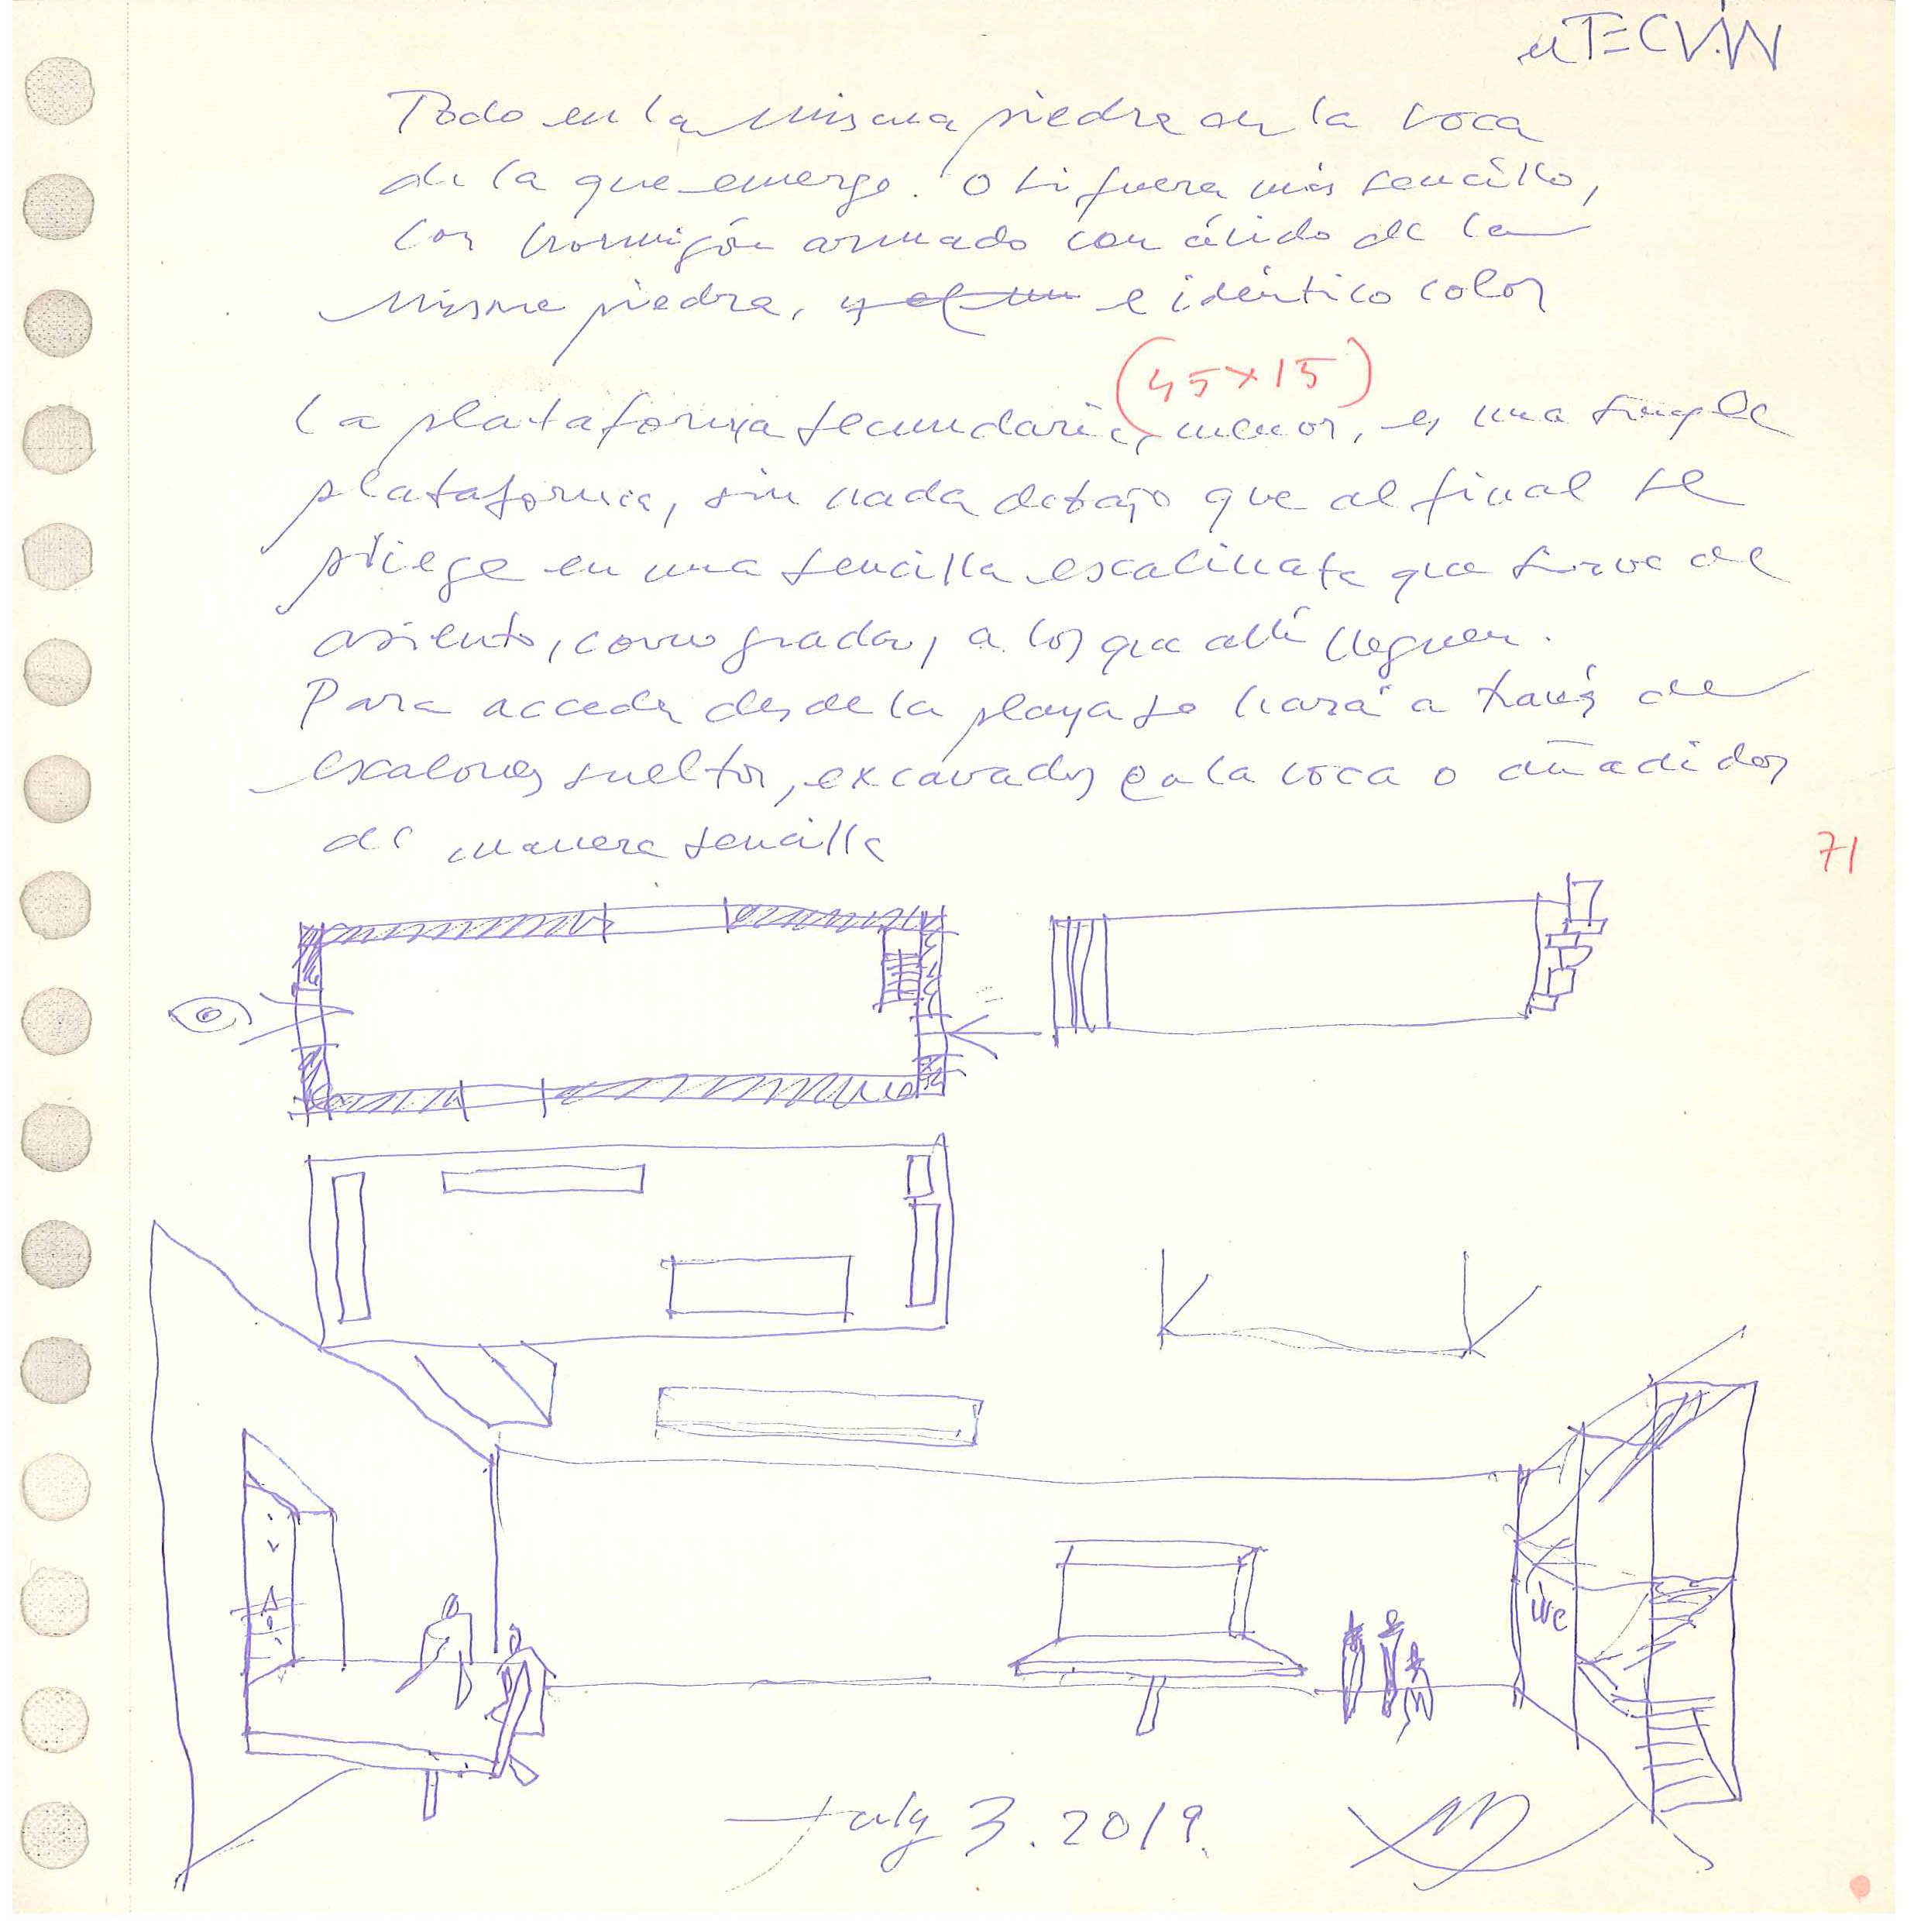 el TECUÁN
Todo en la misma piedra en la roca
de la que emerge. O si fuera más sencillo,
con hormigón armado con árido de la
misma piedra, y el mm e idéntico color
(45x15)
La plataforma secundaria, menor, es una simple
plataforma, sin nada debajo que al final se
pliega en una sencilla escalinata que sirve de
asiento, como gradas, a los que allí lleguen.
Para acceder desde la playa se hará a través de
escalones sueltos, excavados en la roca o añadidos
de manera sencilla
71
WC
July 3. 2019.